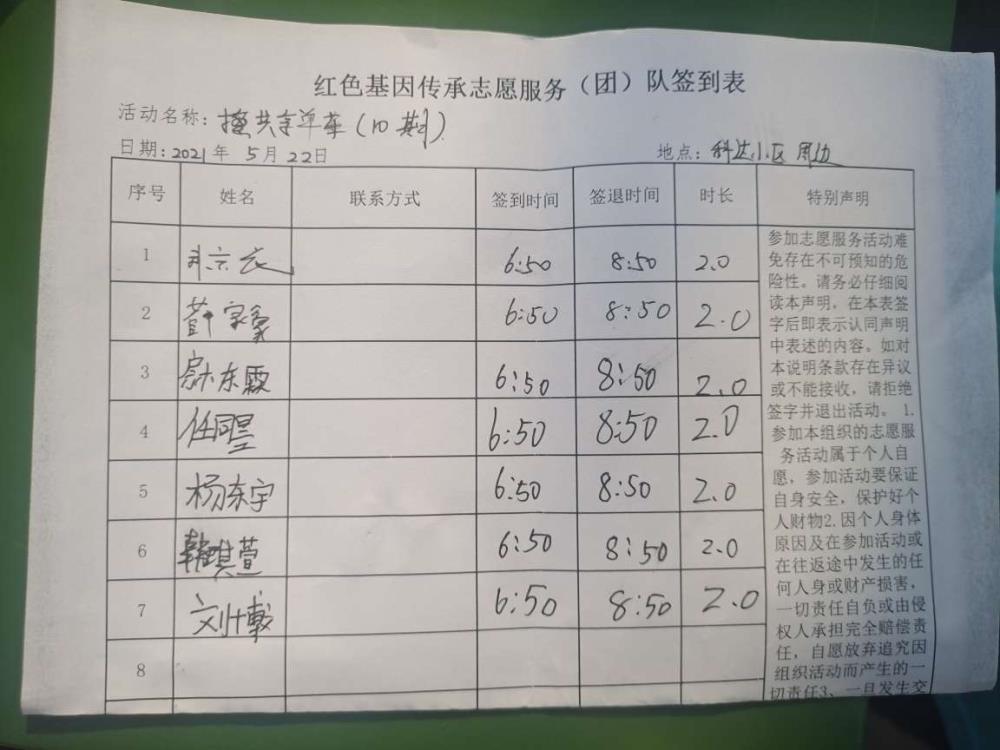 红色基因传承志愿服务（团）队签到表
活动名称：擦共享单车（10期）
日期：2021年 5月 22日
地点：科达小区周边
序号 姓名 联系方式 签到时间 签退时间 时长 特别声明
1 6:50 8:50 2.0
2 6:50 8:50 2.0
3 东霖 6:50 8:50 2.0
4 任同昱 6:50 8:50 2.0
5 杨东宇 6:50 8:50 2.0
6 韩萱 6:50 8:50 2.0
7 刘 6:50 8:50 2.0
8
参加志愿服务活动难
免存在不可预知的危
险性。请务必仔细阅
读本声明，在本表签
字后即表示认同声明
中表述的内容。如对
本说明条款存在异议
或不能接收，请拒绝
签字并退出活动。 1.
参加本组织的志愿服
务活动属于个人自
愿，参加活动要保证
自身安全，保护好个
人财物2.因个人身体
原因及在参加活动或
在往返途中发生的任
何人身或财产损害，
一切责任自负或由侵
权人承担完全赔偿责
任，自愿放弃追究因
组织活动而产生的一
切责任3、一旦发生交